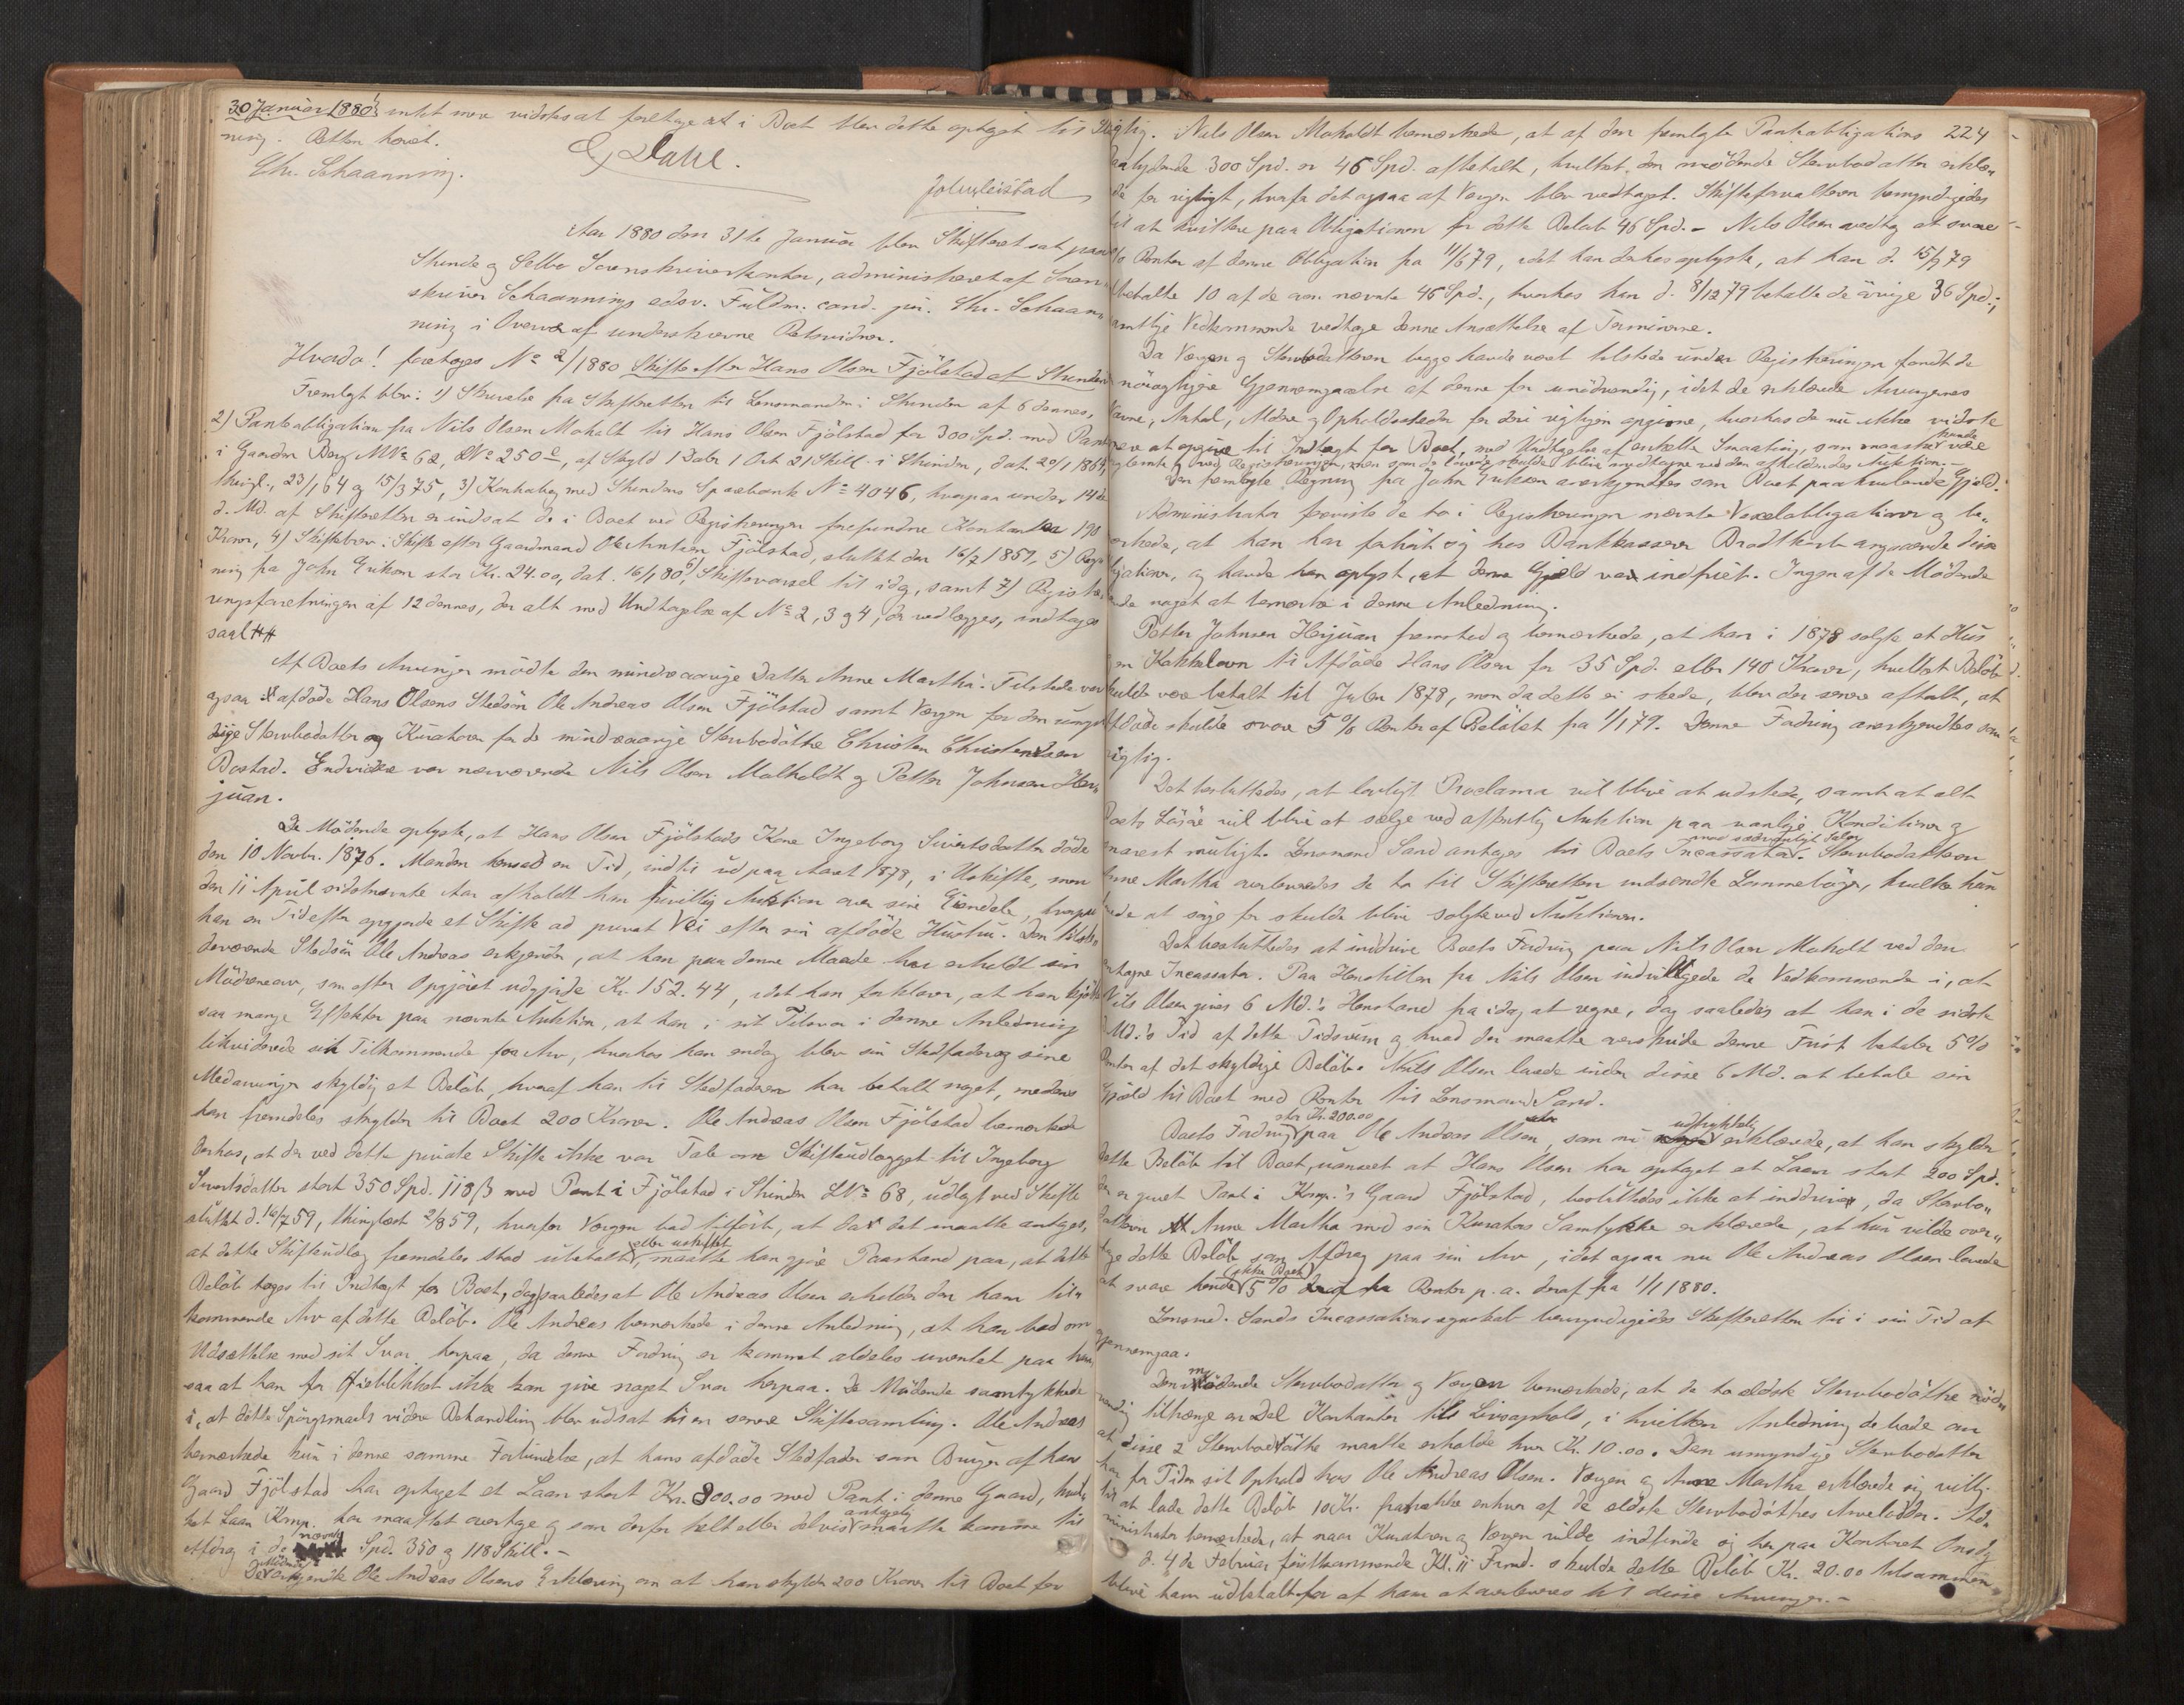 30 Januar 1880
intet mere vidstes at foretaget i Boet blev dette optaget til Slig-
ning. Retten hævet.
Chr. Schaanning. E. Dahl.
John Leistad
Aar 1880 den 31te Januar blev Skifteret sat paa
Strinde og Selbo Sorenskriverkontor, administreret af Soren-
skriver Schaannings edsv. Fuldm. cand. jur. Chr. Schaan-
ning i Overvær af underskrevne Retsvidner.
Hvorda! foretoges No 2/1880 Skifte efter Hans Olsen Fjölstad af Strinden
Fremlagt blev: 1) Skrivelse fra Skifteretten til Lensmanden i Strinden af 6 dennes,
2) Pantobligation fra Nils Olsen Moholt til Hans Olsen Fjölstad for 300 Spd. med Pant
i Gaarden Berg MNo 62, LNo 250c, af Skyld 1 Daler 1 Ort 21 Skill. i Strinden, dat. 20/1 1864,
thingl. 23/1 64 og 15/3 75, 3) Kontrabog med Strindens Sparebank No 4046, hvorpaa under 14de
d. Md. af Skifteretten er indsat de i Boet ved Registreringen forefundne Kontanter 190
Kroner, 4) Skiftebrev i Skifte efter Gaardmand Ole Arntsen Fjölstad, sluttet den 16/7 1859, 5) Reg-
ning fra John Eriksen stor Kr. 24.00, dat. 16/1 80, 6) Skiftevarsel til idag, samt 7) Registre-
ringsforretningen af 12 dennes, der alt med Undtagelse af No 2, 3 og 4, der vedlægges, indtages
saal. ##
Af Boets Arvinger mödte den mindreaarige Datter Anne Martha. Tilstede var
ogsaa afdöde Hans Olsens Stedsön Ole Andreas Olsen Fjölstad samt Værgen for den umyn-
dige Stervbodatter og Kurator for de mindreaarige Stervbodöttre Christen Christensen
Bostad. Endvidere var nærværende Nils Olsen Moholdt og Petter Johnsen Her-
juan.
De Mödende oplyste, at Hans Olsen Fjölstads Kone Ingeborg Sivertsdatter döde
den 10 Novbr. 1876. Manden hensad en Tid, indtil ud paa Aaret 1878, i Uskifte, men
den 11 April sidstnævnte Aar afholdt han frivillig Auktion over sine Eiendele, hvorpaa
han en Tid efter opgjorde et Skifte ad privat Vei efter sin afdöde Hustru. Den tilste-
deværende Stedsön Ole Andreas erkjender, at han paa denne Maade har erholdt sin
Mödrenearv, som efter Opgjöret udgjorde Kr. 152.44, idet han forklarer, at han kjöbte
saa mange Effekter paa nævnte Auktion, at han i sit Tilsvar i denne Anledning
likviderede sit Tilkommende for Arv, hvorhos han endog blev sin Stedfader og sine
Medarvinger skyldig et Belöb, hvoraf han til Stedfaderen har betalt noget, medens
han fremdeles skylder til Boet 200 Kroner. Ole Andreas Olsen Fjölstad bemærkede
derhos, at der ved dette private Skifte ikke var Tale om Skifteudlægget til Ingeborg
Sivertsdatter stort 350 Spd. 118 ß med Pant i Fjölstad i Strinden LNo 68, udlagt ved Skifte
sluttet d. 16/7 59, thinglæst 2/8 59, hvorfor Værgen bad tilfört, at da det maatte antages,
at dette Skifteudlæg fremdeles stod ubetalt eller uskiftet, maatte han gjöre Paastand paa, at dette
Belöb toges til Indtægt for Boet, dog saaledes at Ole Andreas Olsen erholder den ham til-
kommende Arv af dette Belöb. Ole Andreas bemærkede i denne Anledning, at han bad om
Udsættelse med sit Svar herpaa, da denne Fordring er kommet aldeles uventet paa ham
saa at han for Öieblikket ikke kan give noget Svar herpaa. De Mödende samtykkede
i, at dette Spörgsmaals videre Behandling blev udsat til en senere Skiftesamling. Ole Andreas
bemærkede kun i denne samme Forbindelse, at hans afdöde Stedfader som Bruger af hans
Gaard Fjölstad har optaget et Laan stort Kr. 800.00 med Pant i denne Gaard, hvil-
ket Laan Komp. har maattet overtage og som derfor helt eller delvis antagelig maatte komme til
Afdrag i de nævnte Spd. 350 og 118 Skill. -
De Mödende erkjendte Ole Andreas Olsens Erklæring om at han skylder 200 Kroner til Boet for
rigtig. Nils Olsen Moholdt bemærkede, at af den fremlagte Pantobligations 224
paalydende 300 Spd. er 46 Spd. afbetalt, hvilket den mödende Stervbodatter erklæ-
rede for rigtigt, hvorfor det ogsaa af Værgen blev vedtaget. Skifteforvalteren bemyndigedes
til at kvittere paa Obligationen for dette Belöb 46 Spd. - Nils Olsen vedtog at svare
% Renter af denne Obligation fra 11/6 79, idet han derhos oplyste, at han d. 15/9 79
betalte 10 af de ovennævnte 46 Spd., hvorhos han d. 8/12 79 betalte de övrige 36 Spd.;
samtlige Vedkommende vedtoge denne Ansættelse af Terminerne.
Da Værgen og Stervbodatteren begge havde været tilstede under Registreringen fandt de
nöiagtigere Gjennemgaaelse af denne for unödvendig, idet de erklærede Arvingernes
Navne, Antal, Aldre og Opholdssteder for deri rigtigen opgivne, hvorhos de nu ikke vidste
mere at opgive til Indtægt for Boet, med Undtagelse af enkelte Smaating, som maaske kunde være
glemte ved Registreringen, men som de lovede skulde blive medtagne ved den afholdendes Auktion. -
Den fremlagte Regning fra John Eriksen anerkjendtes som Boet paahvilende Gjæld.
Administrator foreviste de to i Registreringen nævnte Vexelobligationer og be-
mærkede, at han har forhört sig hos Bankkasserer Brodtkorb angaaende disse
Obligationer, og havde han oplyst, at denne Gjæld var indfriet. Ingen af de Mödende
havde noget at bemærke i denne Anledning.
Petter Johnsen Herjuan fremstod og bemærkede, at han i 1878 solgte et Hus
om Kakkelovn til Afdöde Hans Olsen for 35 Spd. eller 140 Kroner, hvilket Belöb
skulde være betalt til Julen 1878, men da dette ei skede, blev der senere aftalt, at
Afdöde skulde svare 5 % Renter af Belöbet fra 1/1 79. Denne Fordring anerkjendtes som
rigtig.
Det besluttedes, at lovligt Proclama vil blive at udstede, samt at alt
Boets Lösöre vil blive at sælge ved offentlig Auktion paa vanlige Konditioner og
snarest muligt. Lensmand Sand antages til Boets Incassator med sædvanligt Salær. Stervbodatteren
Anne Martha overleveredes de to til Skifteretten indsendte Lommeböger, hvilke hun
lovede at sörge for skulde blive solgte ved Auktionen.
Det besluttedes at inddrive Boets Fordring paa Nils Olsen Moholt ved den
antagne Incassator. Paa Henstillen fra Nils Olsen indvilligede de Vedkommende i, at
Nils Olsen gives 6 Md.'s Henstand fra idag at regne, dog saaledes at han i de sidste
Md.'s Tid af dette Tidsrum og hvad der maatte overskride denne Frist betaler 5 %
Renter af det skyldige Belöb. Nils Olsen lovede inden disse 6 Md. at betale sin
Gjæld til Boet med Renter til Lensmand Sand.
Boets Fordring stor Kr. 200.00 paa Ole Andreas Olsen, som nu udtrykkelig erklærede, at han skylder
dette Belöb til Boet, uanseet at Hans Olsen har optaget et Laan stort 200 Spd.
der er givet Pant i Komp.'s Gaard Fjölstad, besluttedes ikke at inddrives, da Stervbo-
datteren Anne Martha med sin Kurators Samtykke erklærede, at hun vilde over-
tage dette Belöb som Afdrag paa sin Arv, idet ogsaa nu Ole Andreas Olsen lovede
at svare hende (ikke Boet) 5 % Renter p. a. deraf fra 1/1 1880.
Lensmd. Sands Incassationsregnskab bemyndigedes Skifteretten til i sin Tid at
gjennemgaa.
Den mödende Stervbodatter og Værgen bemærkede, at de to ældste Stervbodöttre nöd-
vendig tiltrænge en Del Kontanter til Livsophold, i hvilken Anledning de bade om
at disse 2 Stervbodöttre maatte erholde hver Kr. 10.00. Den umyndige Stervbodatter
har for Tiden sit Ophold hos Ole Andreas Olsen. Værgen og Anne Martha erklærede sig villig
til at lade dette Belöb 10 Kr. fratrække enhver af de ældste Stervbodöttres Arvelodder. Ad-
ministrator bemærkede, at naar Kuratoren og Værgen vilde indfinde sig her paa Kontoret Onsdag
d. 4de Februar förstkommende Kl. 11 Formd. skulde dette Belöb Kr. 20.00 tilsammen
blive ham udbetalt for af ham at overleveres til disse Arvinger. -